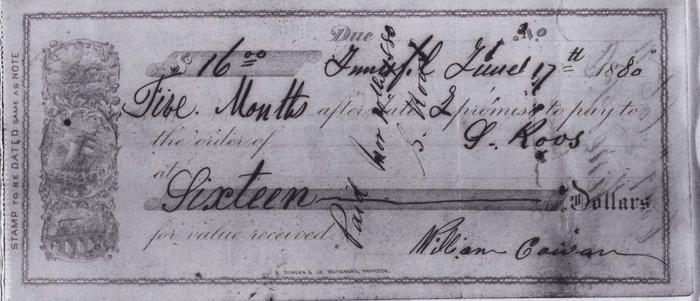 Due No
$ 16 00 Innisfil June 17th 1880
Five Months after date I promise to pay to
the order of S. Roos
at
Sixteen Dollars
for value received
William Cowan
STAMP TO BE DATED SAME AS NOTE
DUNCAN & CO. STATIONERS, HAMILTON.
Paid Nov
S. Roos